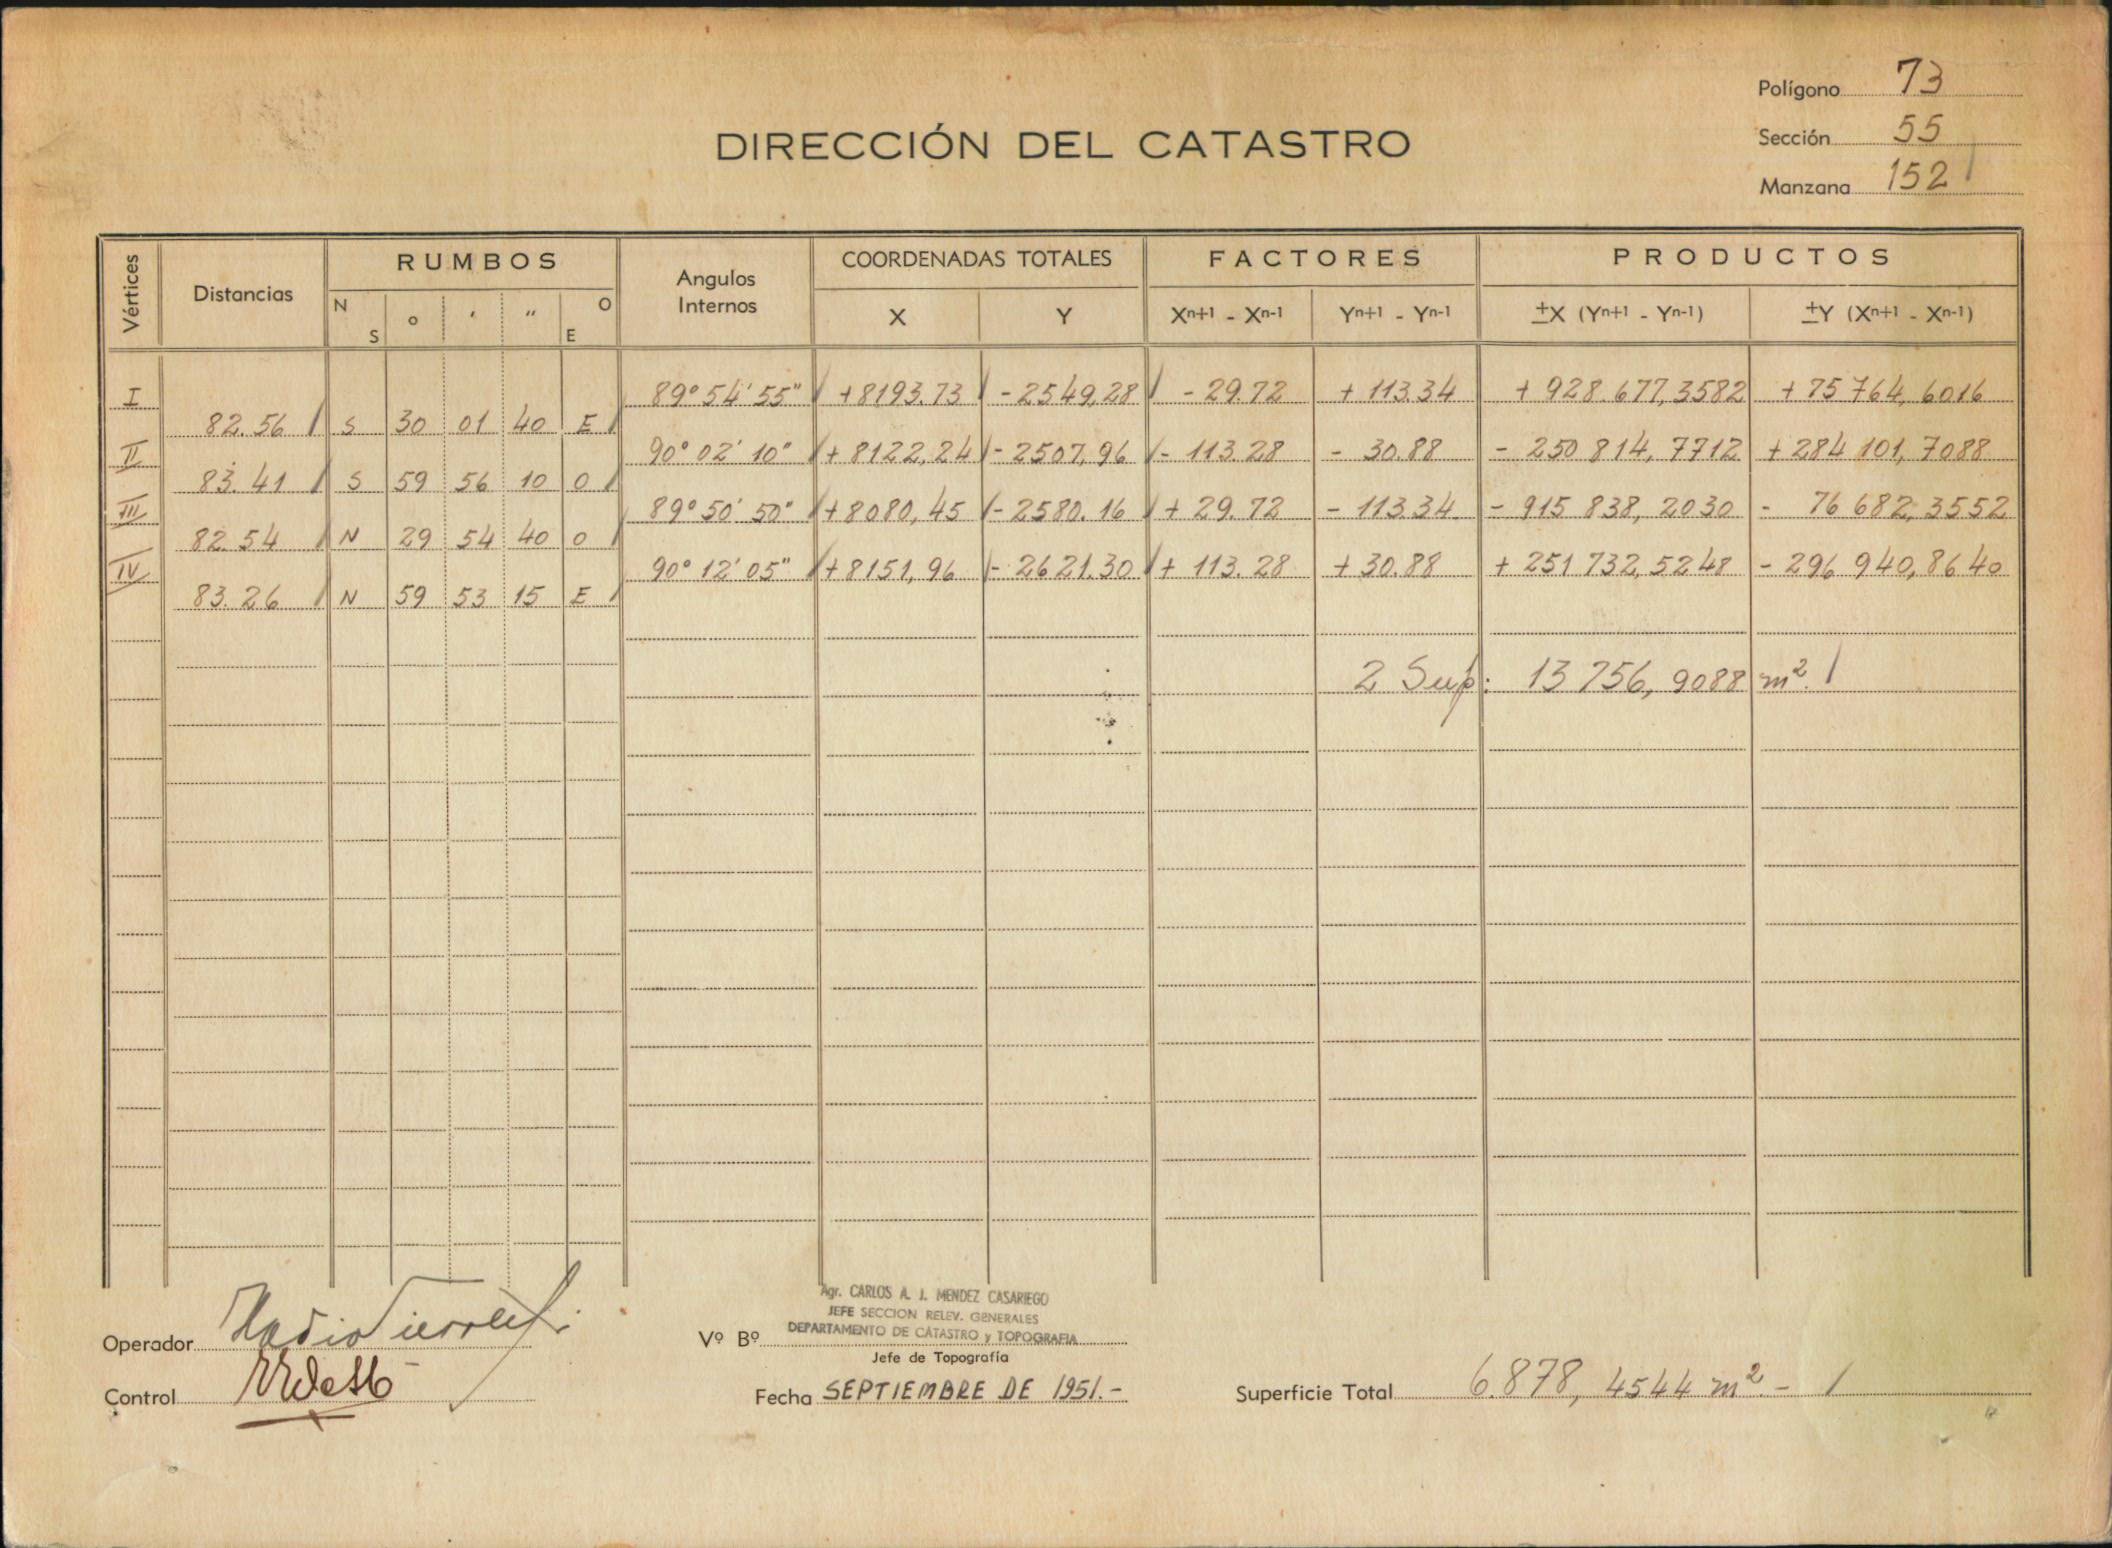 Polígono 73
Sección 55
Manzana 152
DIRECCIÓN DEL CATASTRO
Vértices Distancias RUMBOS Angulos Internos COORDENADAS TOTALES FACTORES PRODUCTOS
N S o ' " O E X Y Xn+1 - Xn-1 Yn+1 - Yn-1 ±X (Yn+1 - Yn-1) ±Y (Xn+1 - Xn-1)
I 89° 54' 55" +8193.73 -2549,28 - 29.72 + 113.34 + 928.677,3582 + 75 764,6016
82.56 S 30 01 40 E
II 90° 02' 10" + 8122,24 - 2507,96 - 113.28 - 30.88 - 250 814,7712 + 284 101,7088
83.41 S 59 56 10 O
III 89° 50' 50" +8080,45 - 2580.16 + 29.72 - 113.34 - 915 838,2030 - 76 682,3552
82.54 N 29 54 40 O
IV 90° 12' 05" +8151,96 - 2621.30 + 113.28 + 30.88 + 251 732,5248 - 296 940,8640
83.26 N 59 53 15 E
2 Sup: 13 756,9088 m².
Operador
Vº Bº
Agr. CARLOS A. J. MENDEZ CASARIEGO
JEFE SECCION RELEV. GENERALES
DEPARTAMENTO DE CATASTRO y TOPOGRAFIA
Jefe de Topografía
Control
Fecha SEPTIEMBRE DE 1951.-
Superficie Total 6.878,4544 m².-